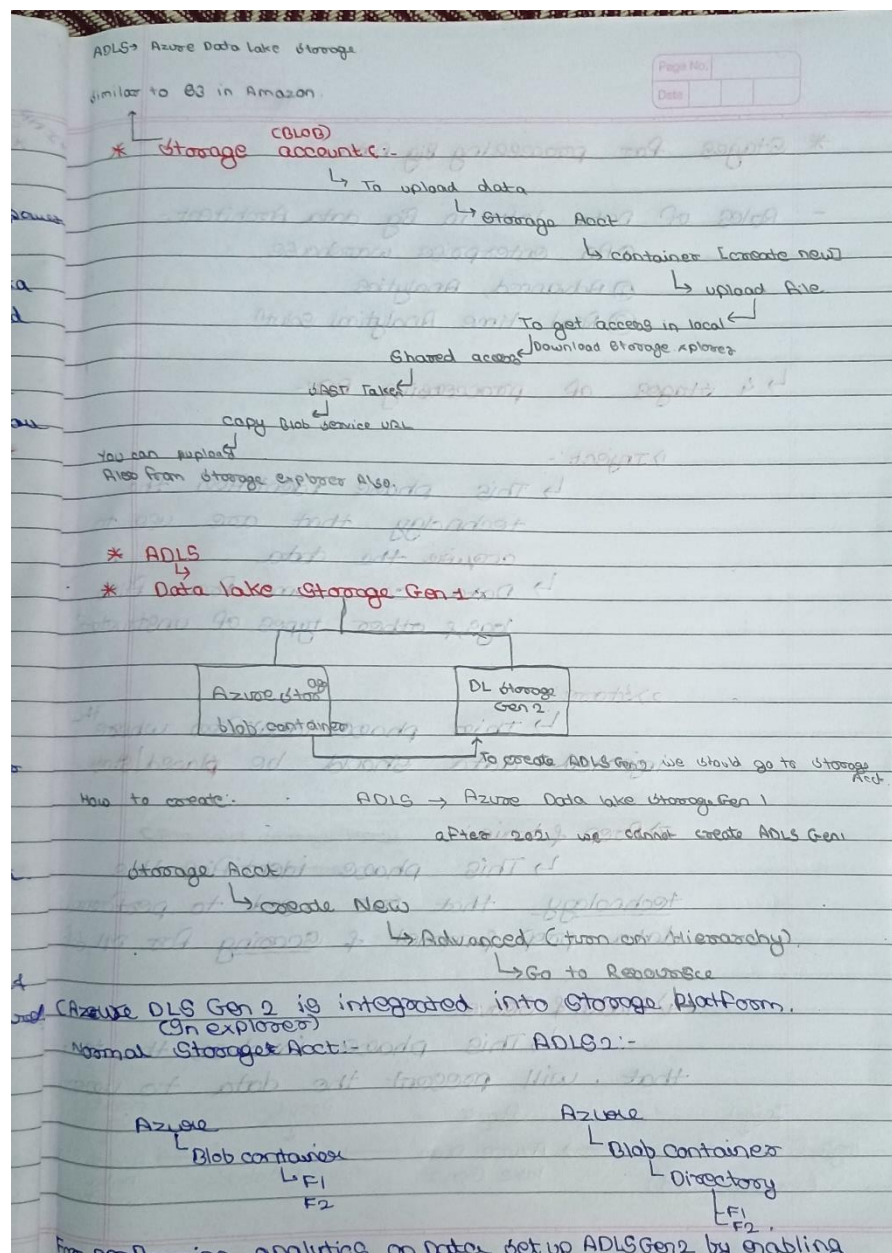 ADLS → Azure Data lake Storage
Page No.
Date
Similar to S3 in Amazon.
(BLOB)
* Storage accounts:-
↳ To upload data
↳ Storage Acct
↳ container [create new]
↳ upload file
To get access in local
Download Storage xplorer
Shared access
Copy Blob service URL
You can
Also from Storage explorer Also.
* ADLS
↳
* Data lake Storage Gen 1
Azure Storage
blob container
DL Storage
Gen 2
To create ADLS Gen2, we should go to Storage
Acct
How to create:- ADLS → Azure Data lake Storage Gen 1
after 2021 we cannot create ADLS Gen1
Storage Acct
↳ create New
↳ Advanced (turn on Hierarchy)
↳ Go to
(Azure DLS Gen 2 is integrated into Storage Platform.
(In explorer)
Normal Storage Acct:- ADLS2:-
Azure Azure
↳ Blob container ↳ Blob container
↳ F1 ↳ Directory
F2 ↳ F1
F2.
analytics on Data, set up ADLS Gen2 by enabling